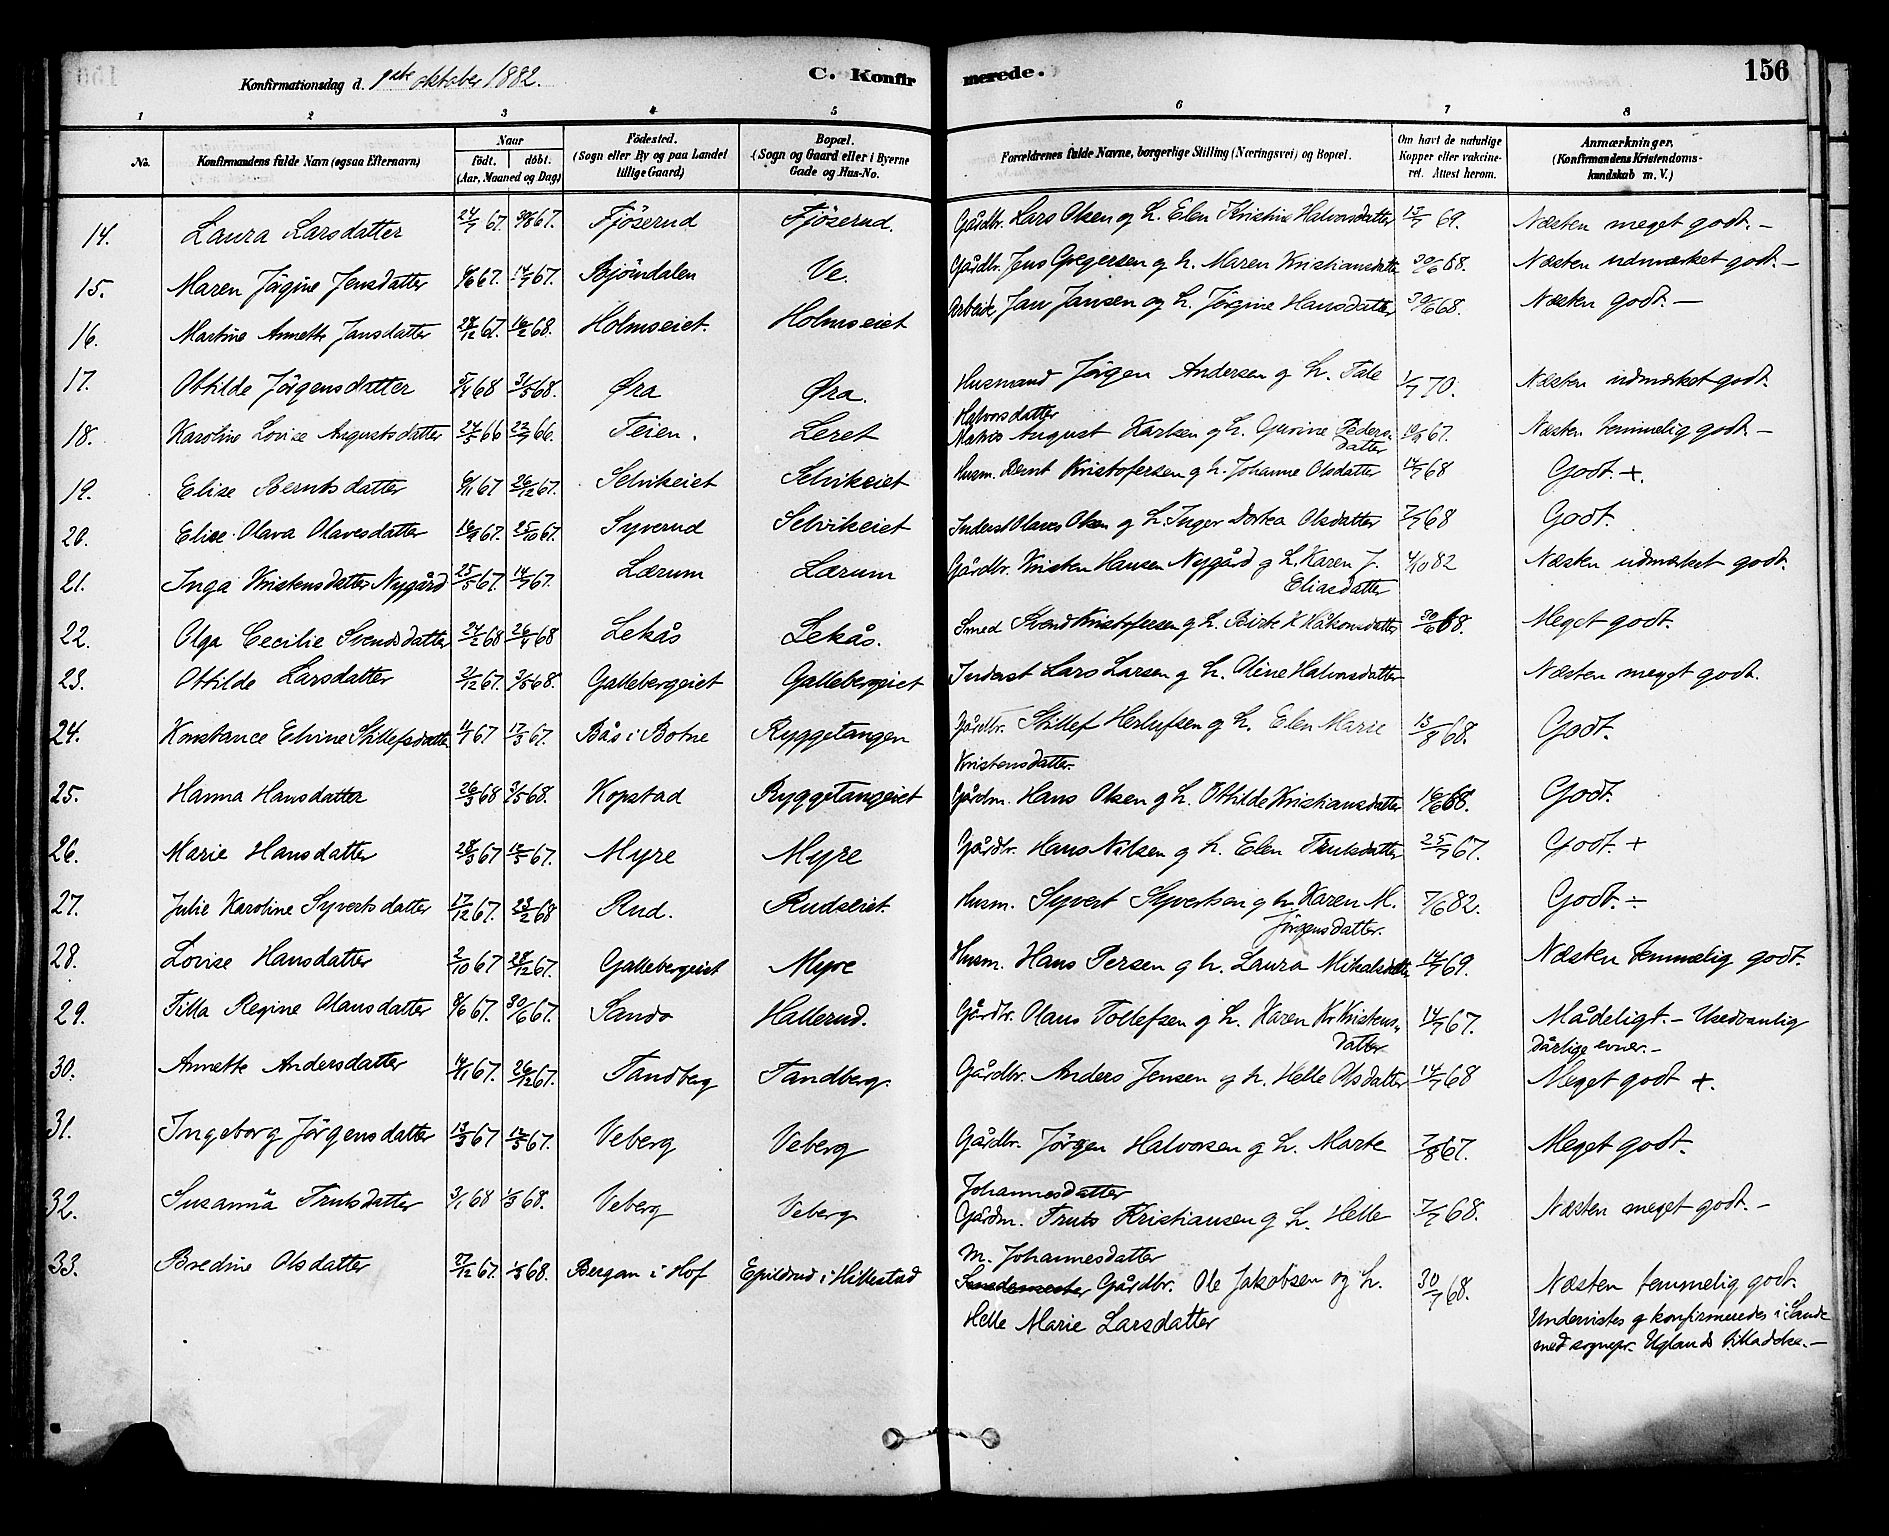 Konfirmationsdag d. 1ste oktober 1882. C. Konfirmerede. 156
1 2 3 4 5 6 7 8
No. Konfirmandens fulde Navn (ogsaa Efternavn) Naar født. døbt. (Aar, Maaned og Dag) Fødested. (Sogn eller By og paa Landet tillige Gaard) Bopæl. (Sogn og Gaard eller i Byerne Gade og Hus-No. Forældrenes fulde Navne, borgerlige Stilling (Næringsvei) og Bopæl. Om havt de naturlige Kopper eller vakcineret. Attest herom. Anmærkninger, (Konfirmandens Kristendomskundskab m. V.)
14. Laura Larsdatter 24/7 67. 30/8 67. Fjöserud Fjöserud. Gårdbr. Lars Olsen og h. Elen Kristine Halvorsdatter 13/7 69. Næsten meget godt. –
15. Maren Jörgine Jensdatter 6/6 67. 14/7 67. Bjöindalen Ve. Gårdbr. Jens Gregersen g h. Maren Kristiansdatter 30/6 68. Næsten udmærket godt. –
16. Martine Annette Jansdatter 28/12 67. 16/2 68. Holmseiet. Holmseiet Arbeide, Jan Jansen og h. Jörgine Hansdatter 30/6 68. Næsten godt. –
17. Othilde Jörgensdatter 5/4 68 31/5 68. Øra Øra. Husmand Jörgen Andersen g h. Tale 1/7 70. Næsten udmærket godt.
Halvorsdatter
18. Karoline Lovise Augustsdatter 24/5 66 23/9 66. Teien. Leret Matros August Karlsen g h. Gurine Peders-datter 10/9 67. Næsten temmelig godt. –
19. Elise Berntsdatter 6/11 67 26/12 67. Selvikeiet Selvikeiet Husm. Bernt Kristofersen g h. Johanne Olsdatter 14/7 68 Godt. +.
20. Elise Olava Olavesdatter 16/9 67. 25/10 67. Syverud Selvikeiet Inderst Olaves Olsen g h. Inger Dortea Olsdatter 7/7 68 Godt.
21. Inga Kristensdatter Nygård 25/5 67. 14/7 67. Lærum Lærum Gårdbr. Kristen Hansen Nygård g h. Karen J. 4/10 82 Næsten udmærket godt.
Eliasdatter
22. Olga Cecilie Svendsdatter 24/2 68 26/4 68 Lekås Lekås. Smed Svend Kristofersen g h. Birte K Håkonsdatter 30/6 68. Meget godt.
23. Othilde Larsdatter 31/12 67. 3/5 68. Gallebergeiet Gallebergeiet Inderst Lars Larsen g h. Oline Halvorsdatter Næsten meget godt.
24. Konstance Elvine Stillefsdatter 11/1 67 17/3 67. Bås i Botne Ryggetangen Gårdbr. Stillef Herlufsen g h. Elen Marie 13/8 68. Godt.
Kristensdatter.
25. Hanna Hansdatter 26/3 68 31/5 68. Kopstad Ryggetangeiet Gårdm. Hans Olsen g h. Othilde Kristiansdatter 16/6 68. Godt.
26. Marie Hansdatter 28/3 67 12/5 67. Myre Myre Gårdbr. Hans Nilsen g h. Elen Trulsdatter 25/7 67. Godt. +
27. Julie Karoline Syvertsdatter 17/12 67. 23/2 68 Rud. Rudseiet. Husm. Syvert Syvertsen g h. Karen M. 7/6 82. Godt. ÷
Jörgensdatter.
28. Lovise Hansdatter 2/10 67 28/12 67. Gallebergeiet Myre Husm. Hans Persen g h. Laura Mikalsdatter 14/7 69. Næsten temmelig godt.
29. Tilla Regine Olausdatter 8/6 67. 30/6 67. Sando Hallerud. Gårdbr. Olaus Tollefsen g h. Karen Kr. Kristens- 14/7 67. Mådeligt. – Usedvanlig
datter dårlige evner. –
30. Annette Andersdatter 14/11 67. 26/12 67. Tandberg Tandberg. Gårdbr. Anders Jensen g h. Helle Olsdatter 14/7 68 Meget godt +.
31. Ingeborg Jörgensdatter 13/3 67 12/5 67. Veberg Veberg Gårdbr. Jörgen Halvorsen g h. Marte 7/8 67. Meget godt.
Johannesdatter
32. Susanna Trulsdatter 3/1 68 1/3 68. Veberg Veberg Gårdm. Truls Kristiansen g h. Helle 7/7 68. Næsten meget godt. –
M. Johannesdatter
33. Bredine Olsdatter 27/12 67. 1/3 68. Bergan i Hof Epildrud i Hillestad Gårdbr. Ole Jakobsen og h. 30/7 68. Næsten temmelig godt.
Helle Marie Larsdatter Undervistes g konfirmeredes i Sande
med sognepr. Uglands tilladelse. –